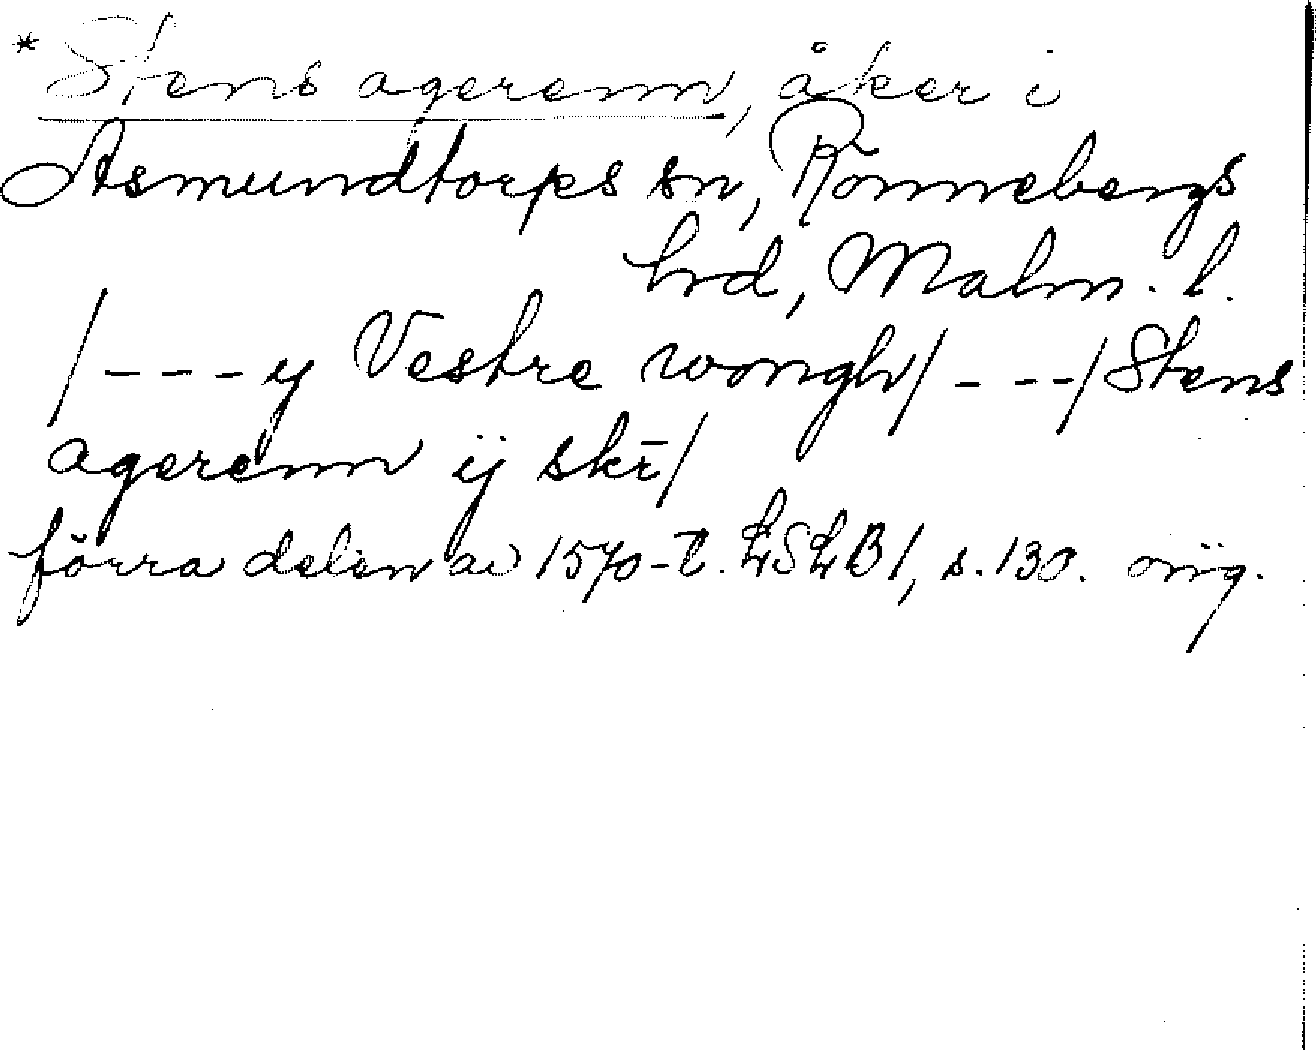 *Stens agerenn, åker i
Asmundtorps sn, Rönnebergs
hrd, Malm. l.
/---y Vestre wongh/---/Stens
agerenn ij skr̄/
förra delen av 1570-t. LSLB1, s. 130. orig.